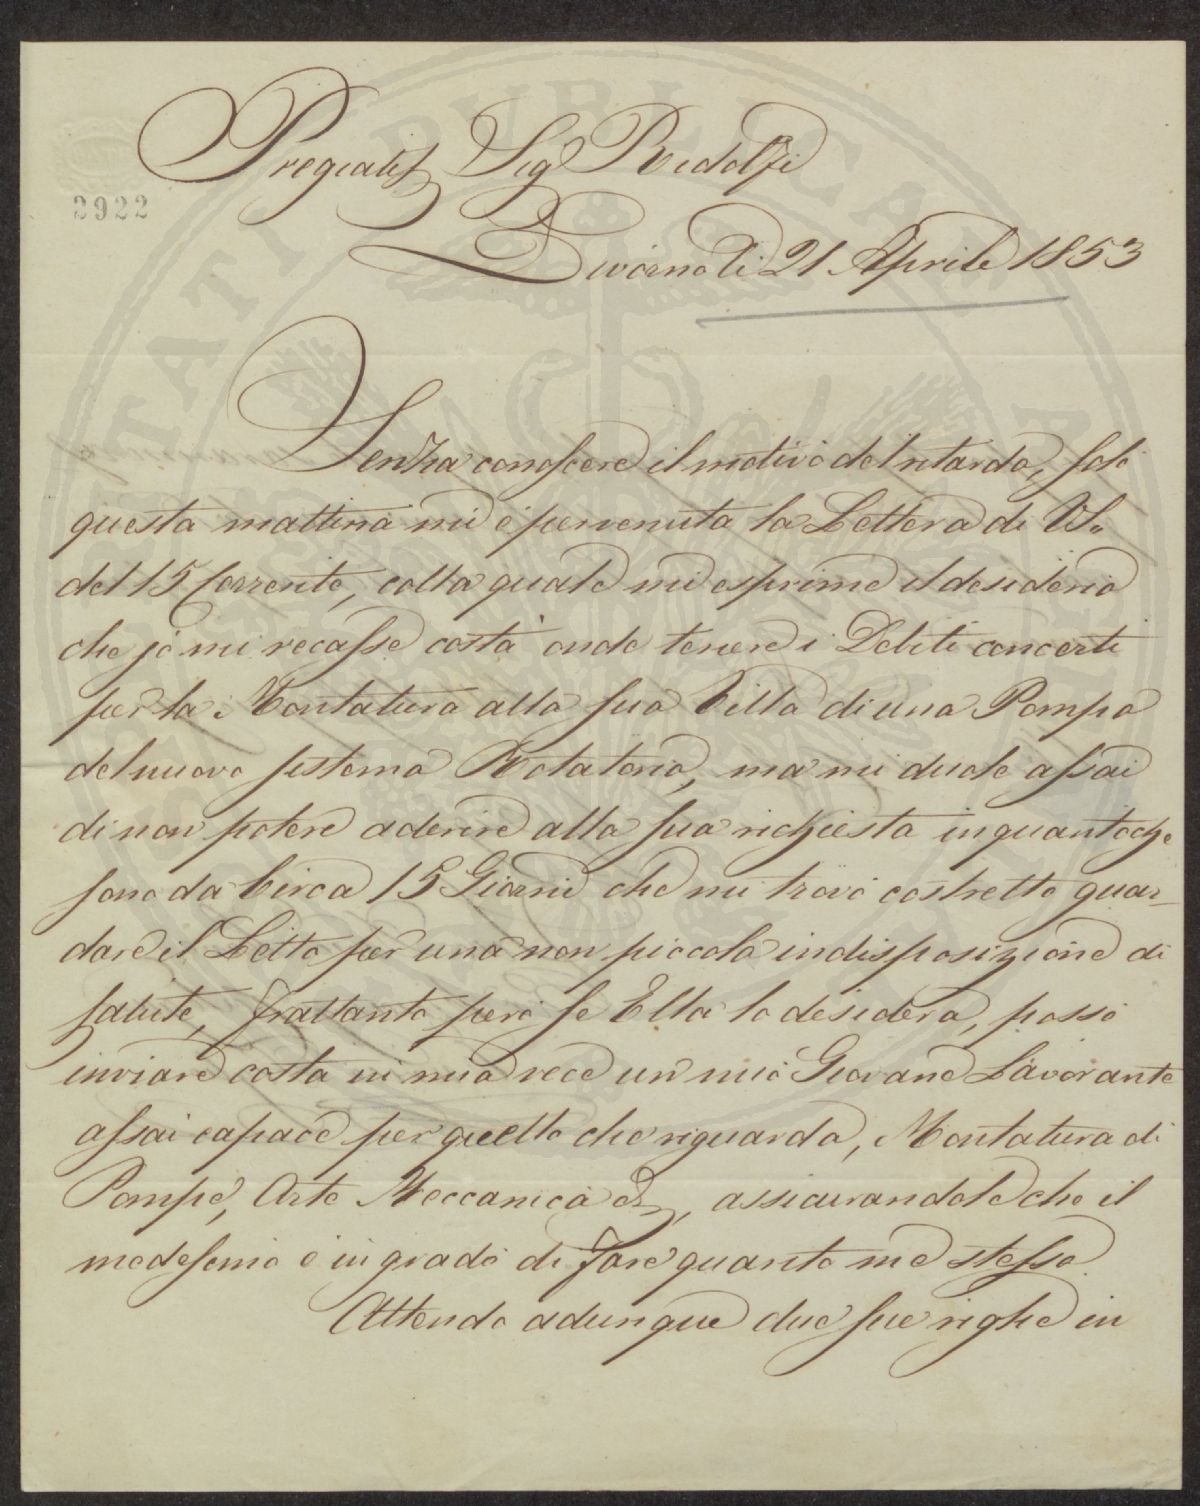 Pregiatis Sigr Ridolfi
2922
Livorno li 21 Aprile 1853
Senza conoscere il motivo del ritardo, solo
questa mattina mi è pervenuta la Lettera di VS.
del 15 Corrente, colla quale mi esprime il desiderio
che jo mi recasse costà onde tenere i Debiti concerti
per la Montatura alla sua Villa di una Pompa
del nuovo sistema Rotatorio, ma mi duole assai
di non potere aderire alla sua richiesta inquantoche
sono da Circa 15 Giorni che mi trovo costretto guar-
dare il Letto per una non piccola indisposizione di
salute, frattanto però se Ella lo desidera, posso
inviare costà in mia vece un mio Giovane Lavorante
assai capace per quello che riguarda, Montatura di
Pompe, Arte Meccanica &, assicurandole che il
medesimo è in grado di fare quanto me stesso
Attendo adunque due sue righe in